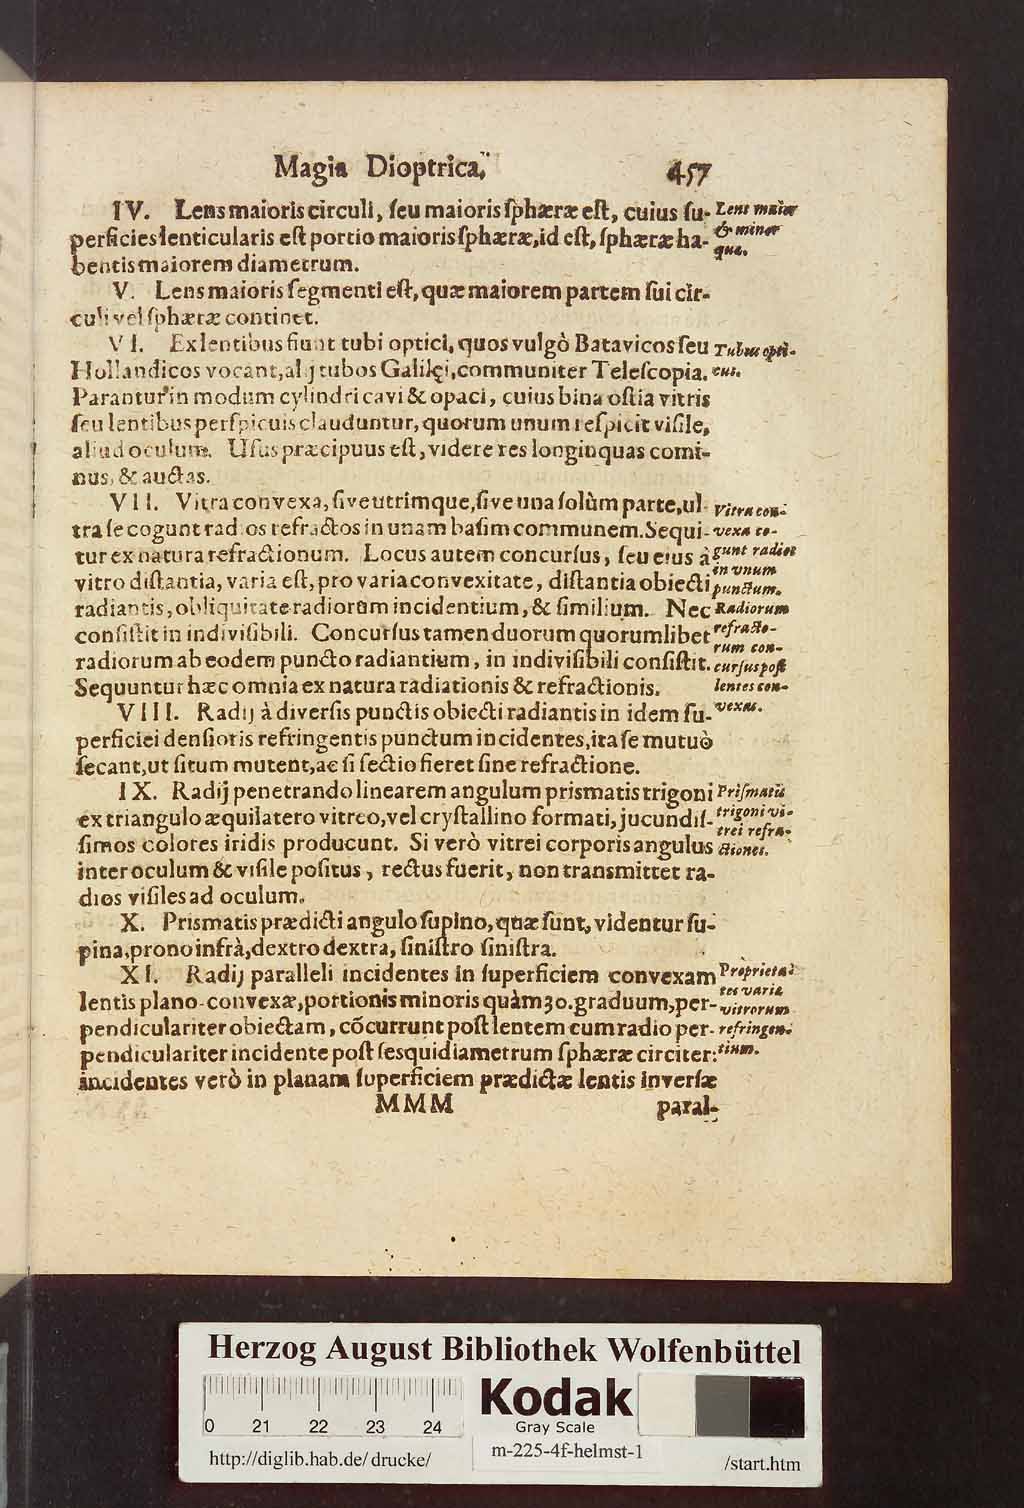 Magia Dioptrica. 457
IV. Lens maioris circuli, ſeu maioris ſphæræ eſt, cuius ſu-
perficies lenticularis eſt portio maioris ſphæræ, id eſt, ſphæræ ha-
bentis maiorem diametrum.
Lens maior
& minor
quæ.
V. Lens maioris ſegmenti eſt, quæ maiorem partem ſui cir-
culi vel ſphæræ continet.
VI. Ex lentibus fiunt tubi optici, quos vulgò Batavicos ſeu
Hollandicos vocant, alij tubos Galilęi, communiter Teleſcopia.
Parantur in modum cylindri cavi & opaci, cuius bina oſtia vitris
ſeu lentibus perſpicuis clauduntur, quorum unum reſpicit viſile,
aliud oculum. Uſus præcipuus eſt, videre res longinquas comi-
nus, & auctas.
Tubus opti-
cus.
VII. Vitra convexa, ſive utrimque, ſive una ſolùm parte, ul-
tra ſe cogunt radios refractos in unam baſim communem. Sequi-
tur ex natura refractionum. Locus autem concurſus, ſeu eius à
vitro diſtantia, varia eſt, pro varia convexitate, diſtantia obiecti
radiantis, obliquitate radiorum incidentium, & ſimilium. Nec
conſiſtit in indiviſibili. Concurſus tamen duorum quorumlibet
radiorum ab eodem puncto radiantium, in indiviſibili conſiſtit.
Sequuntur hæc omnia ex natura radiationis & refractionis.
Vitra con-
vexa co-
gunt radios
in vnum
punctum.
Radiorum
refracto-
rum con-
curſus poſt
lentes con-
vexas.
VIII. Radij à diverſis punctis obiecti radiantis in idem ſu-
perficiei denſioris refringentis punctum incidentes, ita ſe mutuò
ſecant, ut ſitum mutent, ac ſi ſectio fieret ſine refractione.
IX. Radij penetrando linearem angulum prismatis trigoni
ex triangulo æquilatero vitreo, vel cryſtallino formati, jucundiſ-
ſimos colores iridis producunt. Si verò vitrei corporis angulus
inter oculum & viſile poſitus, rectus fuerit, non transmittet ra-
dios viſiles ad oculum.
Priſmatis
trigoni vi-
trei refra-
ctiones.
X. Prismatis prædicti angulo ſupino, quæ ſunt, videntur ſu-
pina, prono infrà, dextro dextra, ſiniſtro ſiniſtra.
XI. Radij paralleli incidentes in ſuperficiem convexam
lentis plano-convexæ, portionis minoris quàm 30. graduum, per-
pendiculariter obiectam, cõcurrunt poſt lentem cum radio per-
pendiculariter incidente poſt ſesquidiametrum ſphæræ circiter:
incidentes verò in planam ſuperficiem prædictæ lentis inverſæ
Proprieta-
tes variæ
vitrorum
refringen-
tium.
MMM paral-
Herzog August Bibliothek Wolfenbüttel
0 21 22 23 24
Kodak
Gray Scale
http://diglib.hab.de/drucke/
m-225-4f-helmst-1
/start.htm